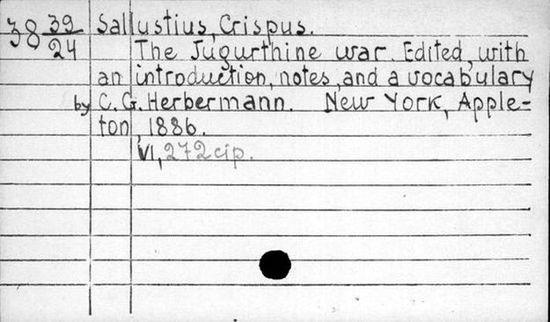 38 39/24 Sallustius, Crispus.
The Jugurthine war. Edited, with
an introduction, notes, and a vocabulary
by C. G. Herbermann. New York, Apple-
ton, 1886.
VI, 272 cip.